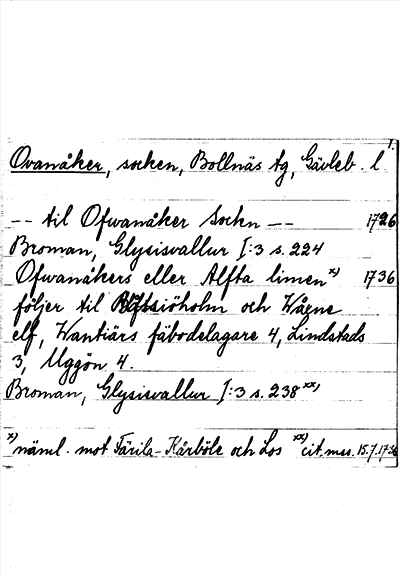 1.
Ovanåker, socken, Bollnäs tg, Gävleb. l
-- til Ofwanåker Sockn -- 1726
Broman, Glysisvallur I:3 s. 224
Ofwanåkers eller Alfta limen x) 1736
följer til och Wågne
elf, Wantiärs fäbodelagare 4, Lindstads
3, Uggön 4.
Broman, Glysisvallur I:3 s. 238 xx)
x) näml. mot Färila-Kårböle och Los xx) cit. mss. 15.7.1736